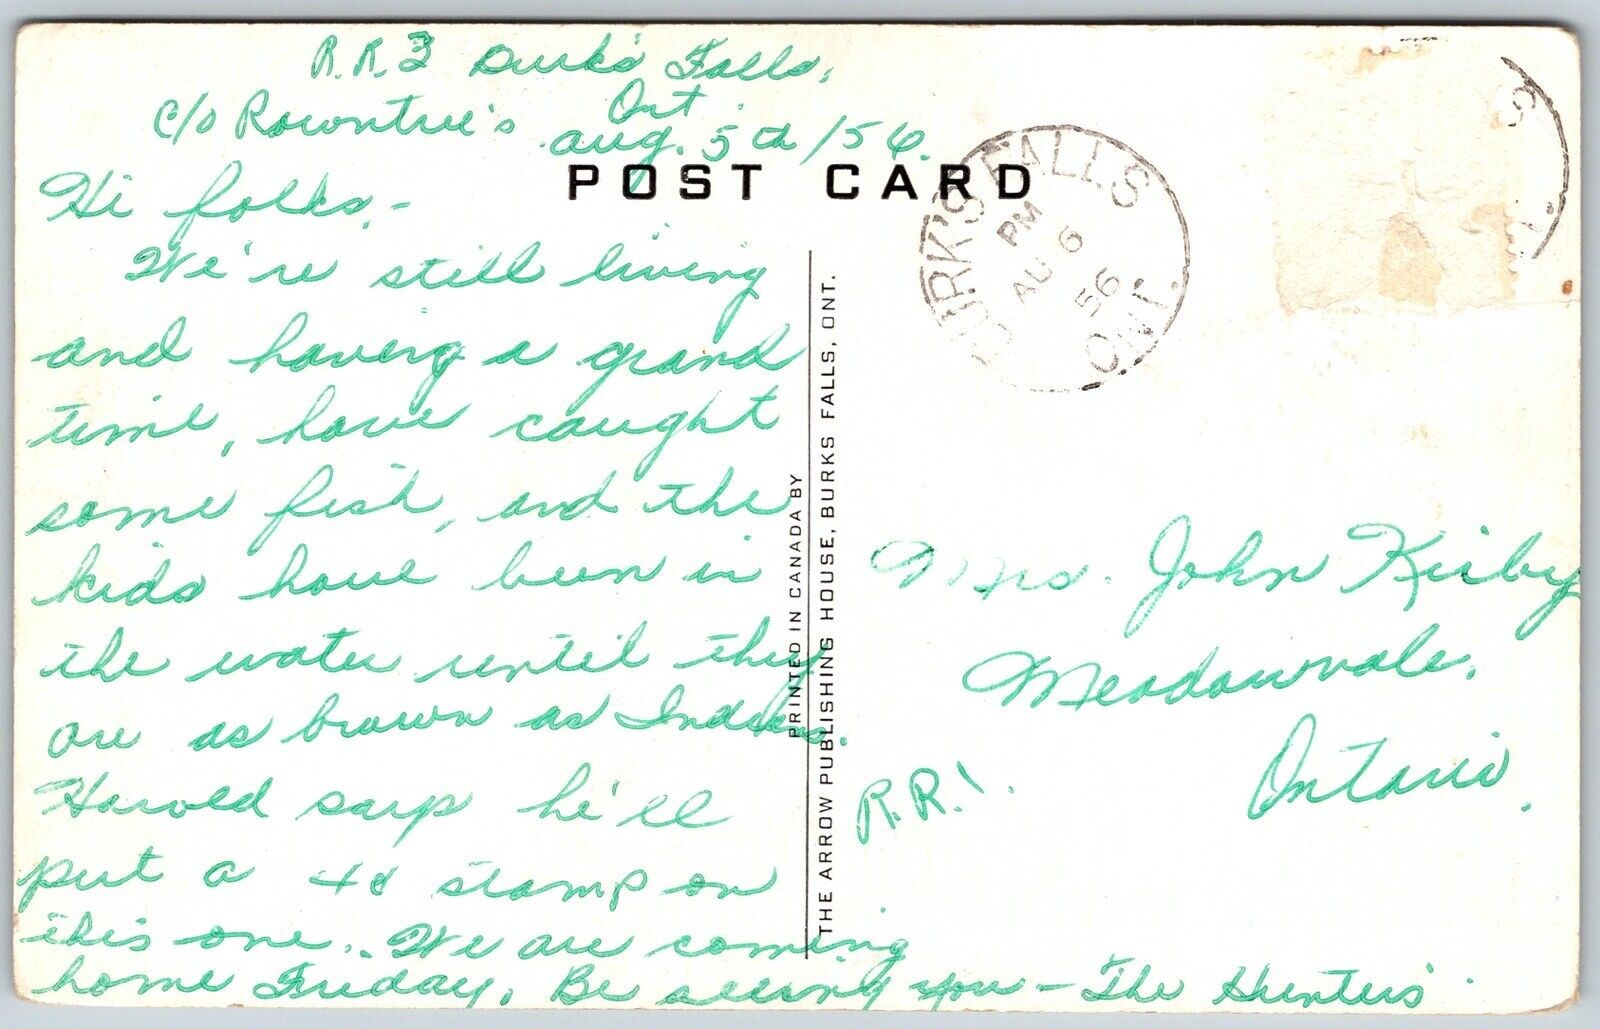 R.R.3 Burk's Falls,
Ont
c/o Rowntree's Aug. 5th/56.
POST CARD
Hi folks,-
We're still living
and having a grand
time, have caught
some fish, and the
kids have been in
the water until they
are as brown as Indians.
Harold says he'll
put a 4¢ stamp on
this one. We are coming
home Friday. Be seeing you - The Hunters
PRINTED IN CANADA BY
THE ARROW PUBLISHING HOUSE, BURKS FALLS, ONT.
BURK'S FALLS
PM
AU 6
56
ONT.
Mrs. John Kirby
Meadowvale,
Ontario.
R.R.1.